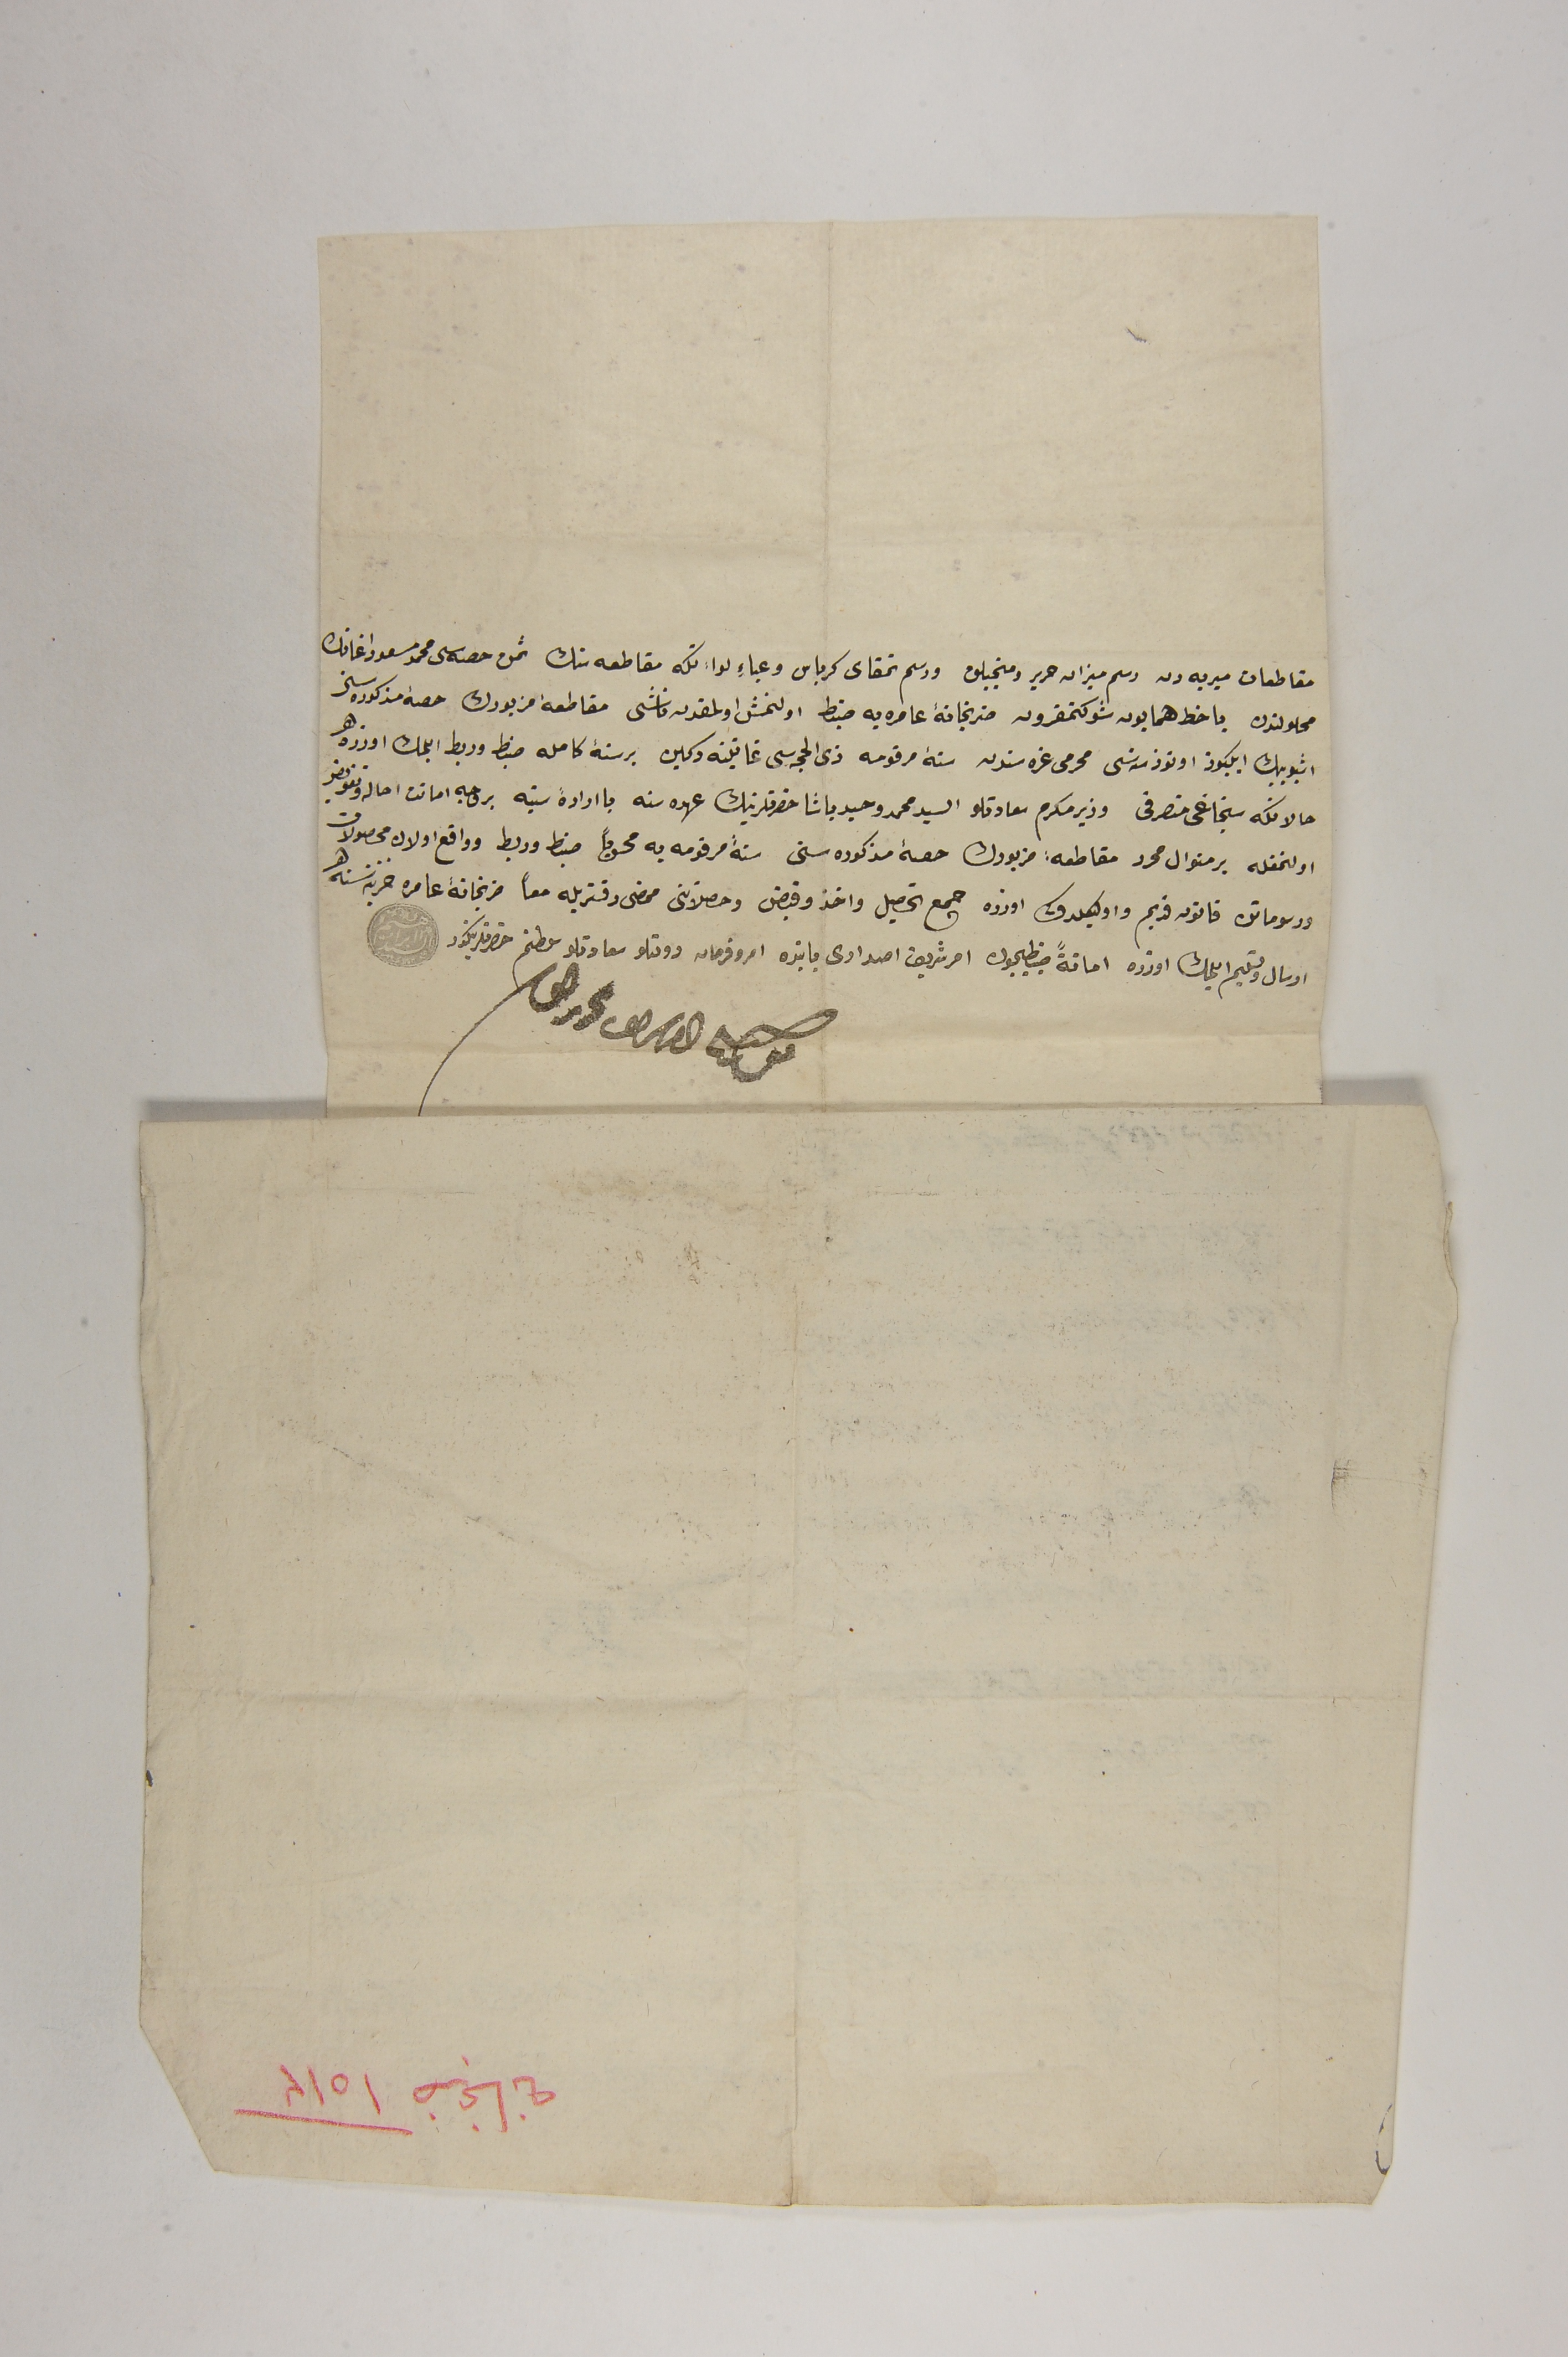 مقاطعات ميريه دن رسم ميزان حرير ومنجيلق ورسم تمغاى كرباس وعباءِ لواءِ تكه مقاطعه سنك ثمن حصه سى محمد مسعود اغانك
محلولندن باخط همايون شوكتمقرون ضربخانهٔ عامره يه ضبط اولنمش اولمقدن ناشى مقاطعهٔ مزبورك حصهٔ مذكوره سنى
اشبو بيك ايكيوز اوتوز سنه سى محرمى غره سندن سنهٔ مرقومه ذى الحجه سى غايتنه دكين بر سنهٔ كامله ضبط وربط ايلمك اوزره
حالا تكه سنجاغى متصرفى وزير مكرم سعادتلو السيد محمد وحيد پاشا حضرتلرينك عهده سنه با ارادهٔ سنيه بر وجه امانت احاله وتفويض
اولنمغله بر منوال محرر مقاطعهٔ مزبورك حصهٔ مذكوره سنى سنهٔ مرقومه يه محسوباً ضبط وربط وواقع اولان محصولات
ورسوماتن قانون قديم واوليكلديكى اوزره جمع تحصيل واخذ وقبض وحصلاتنى ممضى دفتريله معاً ضربخانهٔ عامره خزينه سنه
ارسال وتسليم ايلمك اوزره امانةً ضبطيچون امر شريف اصدارى بابنده امر وفرمان دولتلو سعادتلو سلطانم حضرتلرينكدر
ضربخانه